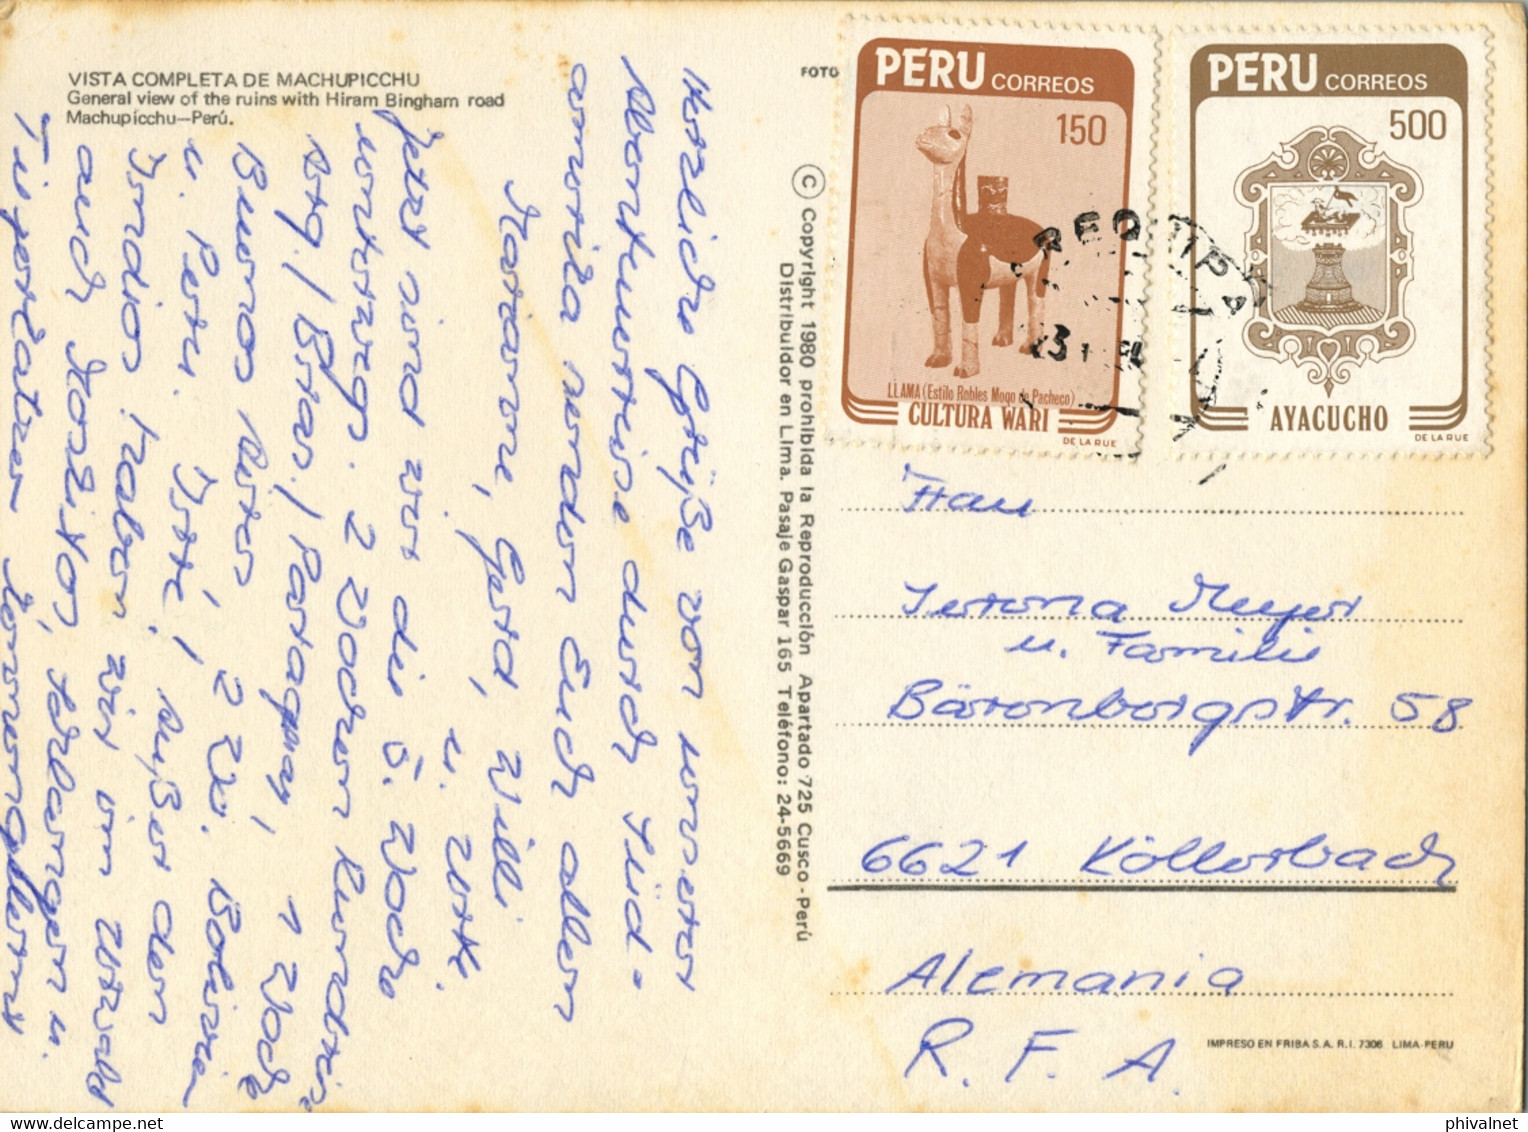 VISTA COMPLETA DE MACHUPICCHU
General view of the ruins with Hiram Bingham road
Machupicchu—Perú.
Herzliche Grüße von unserer
Abenteuerreise durch Süd-
amerika senden Euch allen
Marianne, Gerd, Willi
u.
Jetzt sind wir die 6. Woche
unterwegs. 2 Wochen Rundreise
Arg. / Bras. / Paraguay, 1 Woche
Buenos Aires, 2 W. Bolivien
u. Peru. Außer den
Indios haben wir im Urwald
auch Moskitos, Schlangen u.
FOTO
© Copyright 1980 prohibida la Reproducción Apartado 725 Cusco - Perú
Distribuidor en Lima. Pasaje Gaspar 165 Teléfono: 24-5669
PERU CORREOS
150
LLAMA (Estilo Robles Moqo de Pacheco)
CULTURA WARI
DE LA RUE
PERU CORREOS
500
AYACUCHO
DE LA RUE
AREQUIPA
Frau
Meyer
u. Familie
Bärenbergstr. 58
6621 Köllerbach
Alemania
R. F. A.
IMPRESO EN FRIBA S.A. R.I. 7306 LIMA-PERU
phivalnet